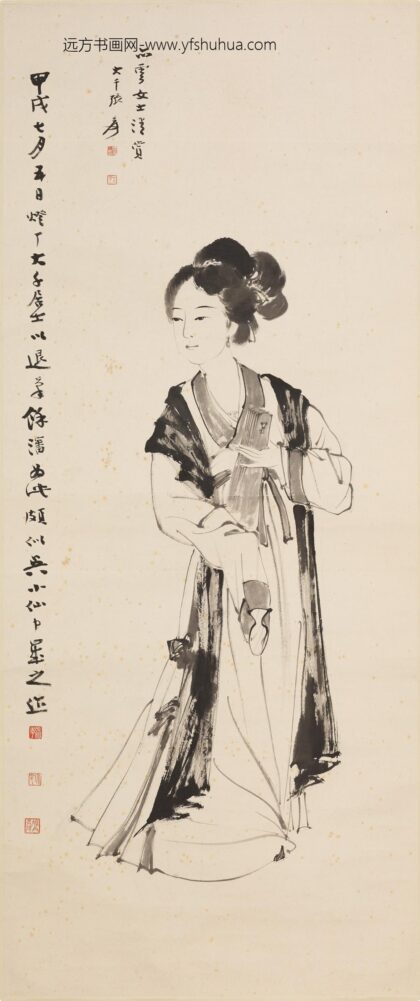 远方书画网·www.yfshuhua.com
女士清賞
大千張爰
甲戌七月五日燈下大千居士以退筆餘瀋為此頗似吳小仙中之作